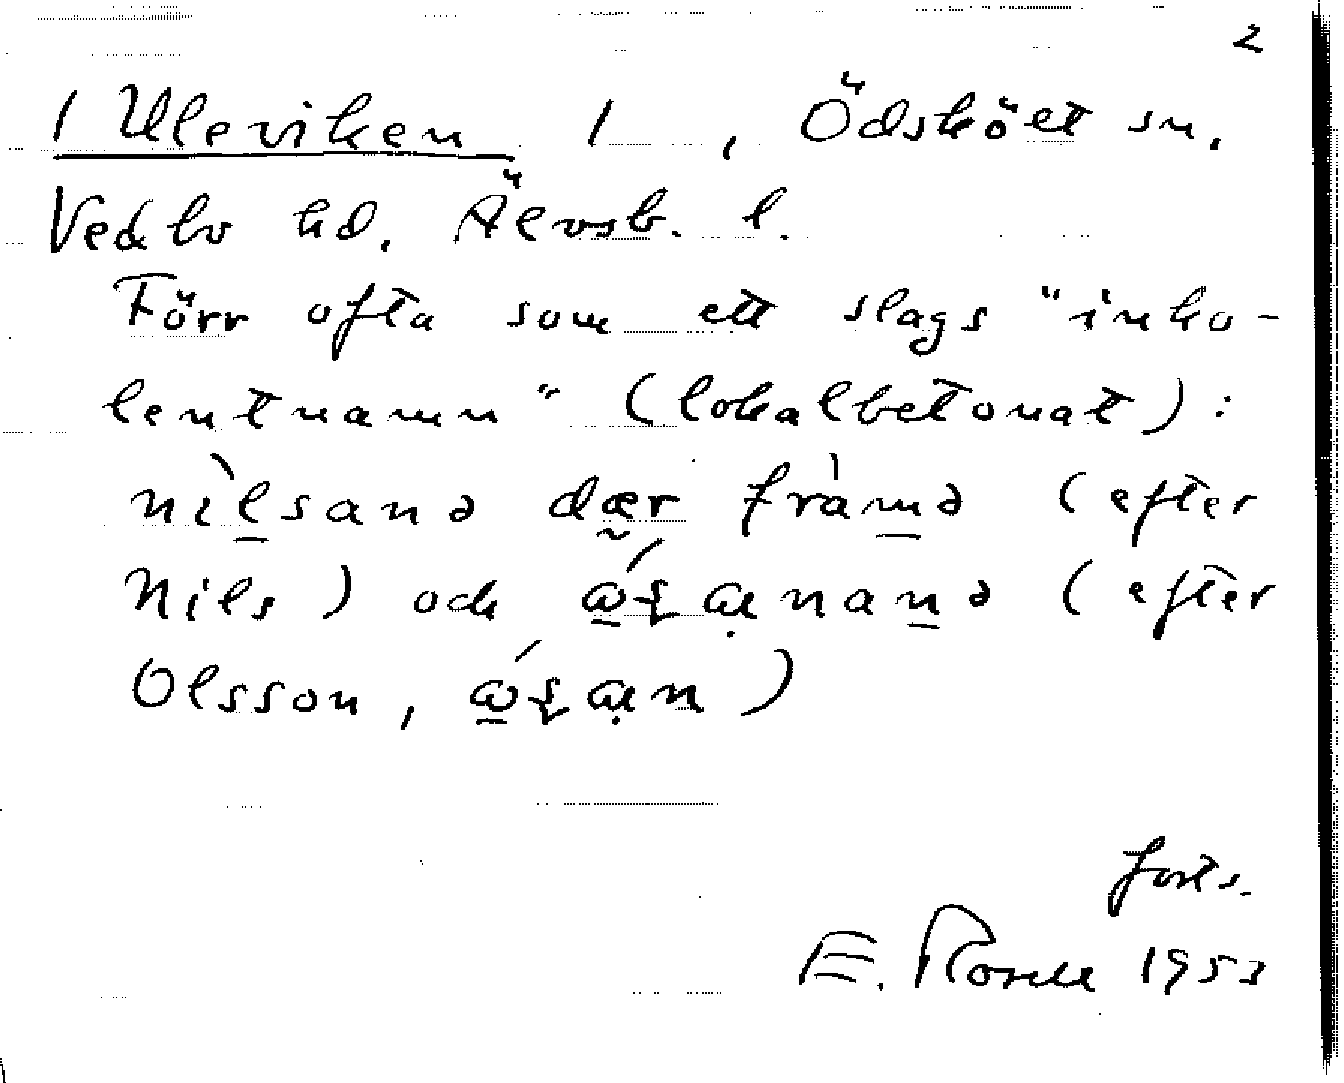 2
/ Uleviken /, Ödskölt sn.
Vedbo hd. Älvsb. l.
Förr ofta som ett slags "inko-
lentnamn" (lokalbetonat):
nìl̠sanə dær̰ fràm̠ə (efter
Nils) och (efter
Olsson, )
forts.
E. Rosell 1953